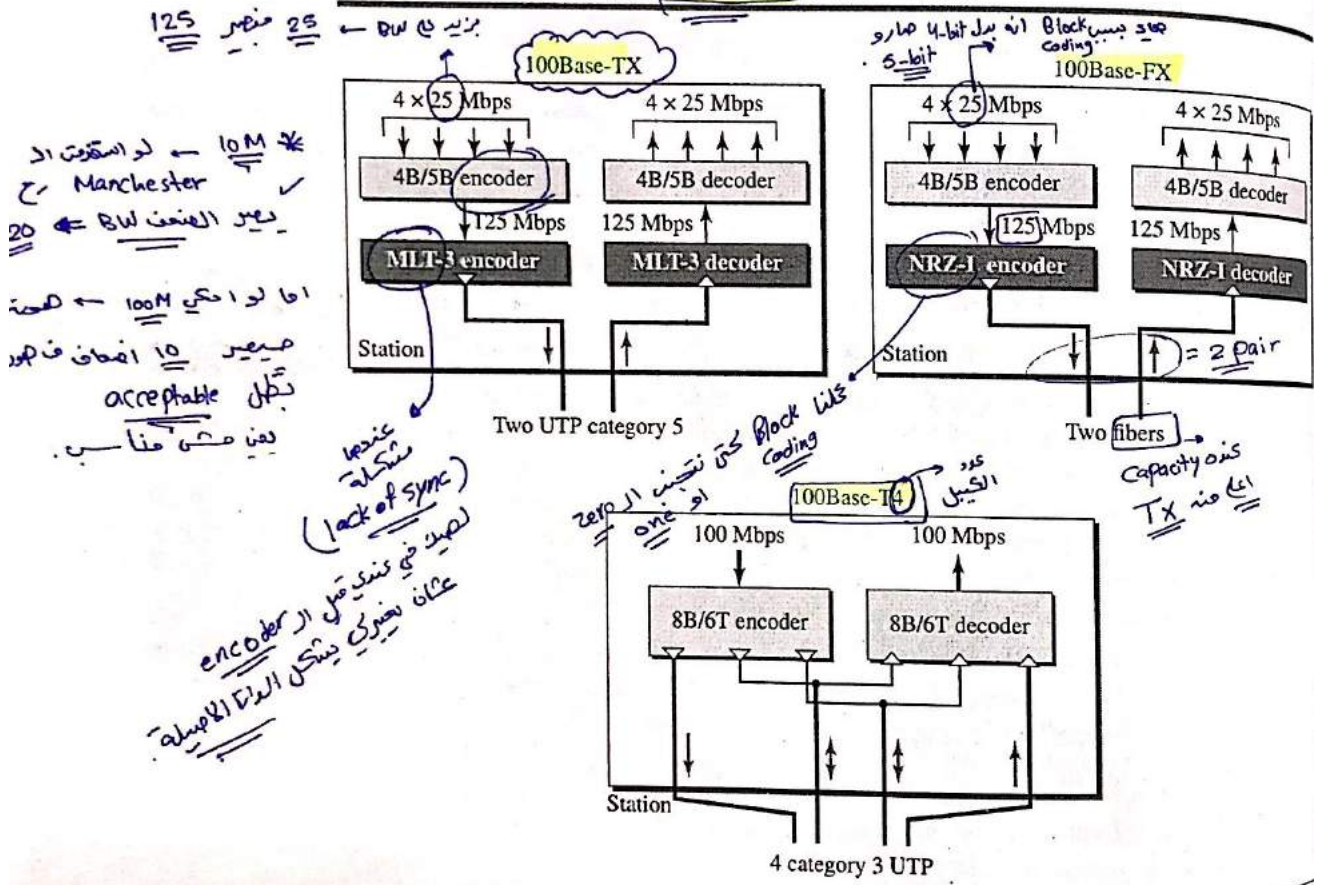 125 منصير 25 ← BW بزيد ال
صار بسبب Block انه بدل 4-bit صارو
coding
5-bit.
100Base-TX
100Base-FX
4 × 25 Mbps
4 × 25 Mbps
4B/5B encoder
4B/5B decoder
125 Mbps
125 Mbps
MLT-3 encoder
MLT-3 decoder
Station
Two UTP category 5
4 × 25 Mbps
4 × 25 Mbps
4B/5B encoder
4B/5B decoder
125 Mbps
125 Mbps
NRZ-I encoder
NRZ-I decoder
Station
= 2 pair
Two fibers
capacity
اعلى من
Tx
* 10M ← لو استخدمت ال
Manchester رح
يصير BW ← 20
اما لو احكي 100M ←
10 اضعاف
acceptable
يعني مش مناسب.
عندها
مشكلة
(lack of sync)
في عندي قبل ال encoder
عشان يغيرلي بشكل الداتا الأصلية.
Block حتى نتجنب ال zero
coding
او one
عدد
الكيبل
100Base-T4
100 Mbps
100 Mbps
8B/6T encoder
8B/6T decoder
Station
4 category 3 UTP